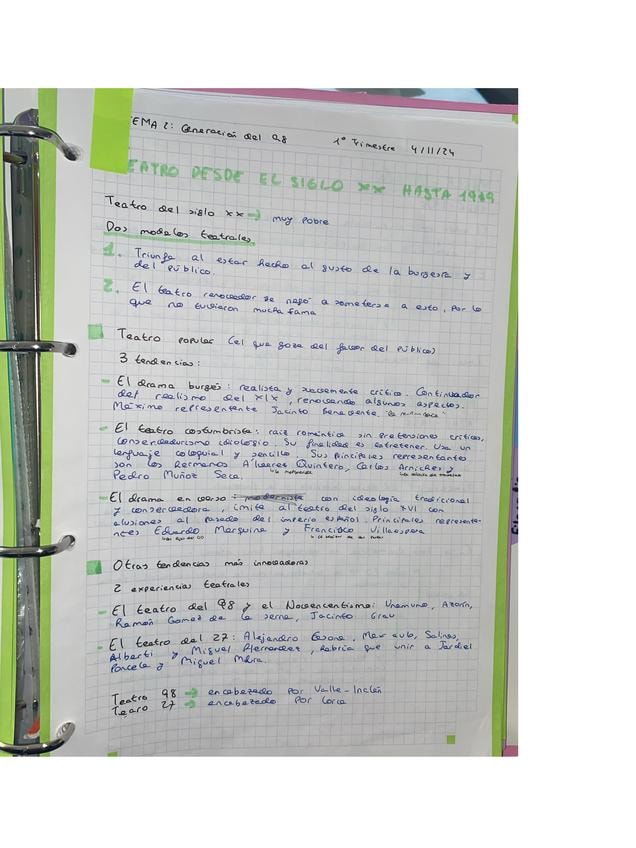 TEMA 2: Generación del 98 1º Trimestre 4/11/24
TEATRO DESDE EL SIGLO XX HASTA 1939
Teatro del siglo xx → muy pobre
Dos modelos teatrales
1. Triunfa al estar hecho al gusto de la burgesía y
del público.
2. El teatro renovador se negó a someterse a esto, por lo
que no tuvieron mucha fama
Teatro popular (el que goza del favor del público)
3 tendencias:
- El drama burgés: realista y suavemente crítico. Continuador
del realismo del XIX, renovando algunos aspectos.
Máximo representante Jacinto Benavente.
- El teatro costumbrista: raíz romántica sin pretensiones críticas,
conservadurismo ideologio. Su finalidad es entretener. Usa un
lenguaje coloquial y sencillo. Sus principales representantes
son los hermanos Álvarez Quintero, Carlos Arniches y
Pedro Muñoz Seca.
- El drama en verso con ideología tradicional
y conservadora, imita al teatro del siglo XVI con
alusiones al pasado del imperio español. Principales represente-
ntes Eduardo Marquina y Francisco Villaespesa
Otras tendencias más innovadoras
2 experiencias teatrales
- El teatro del 98 y el Novencentismo: Unamuno, Azorín,
Ramón Gomez de la serna, Jacinto Grau
- El teatro del 27: Alejandro Casona, Max aub, Salinas,
Alberti y Miguel Hernandez, habría que unir a Jardiel
Poncela y Miguel Mihura.
Teatro 98 → encabezado por Valle-Inclán
Tearo 27 → encabezado por Lorca